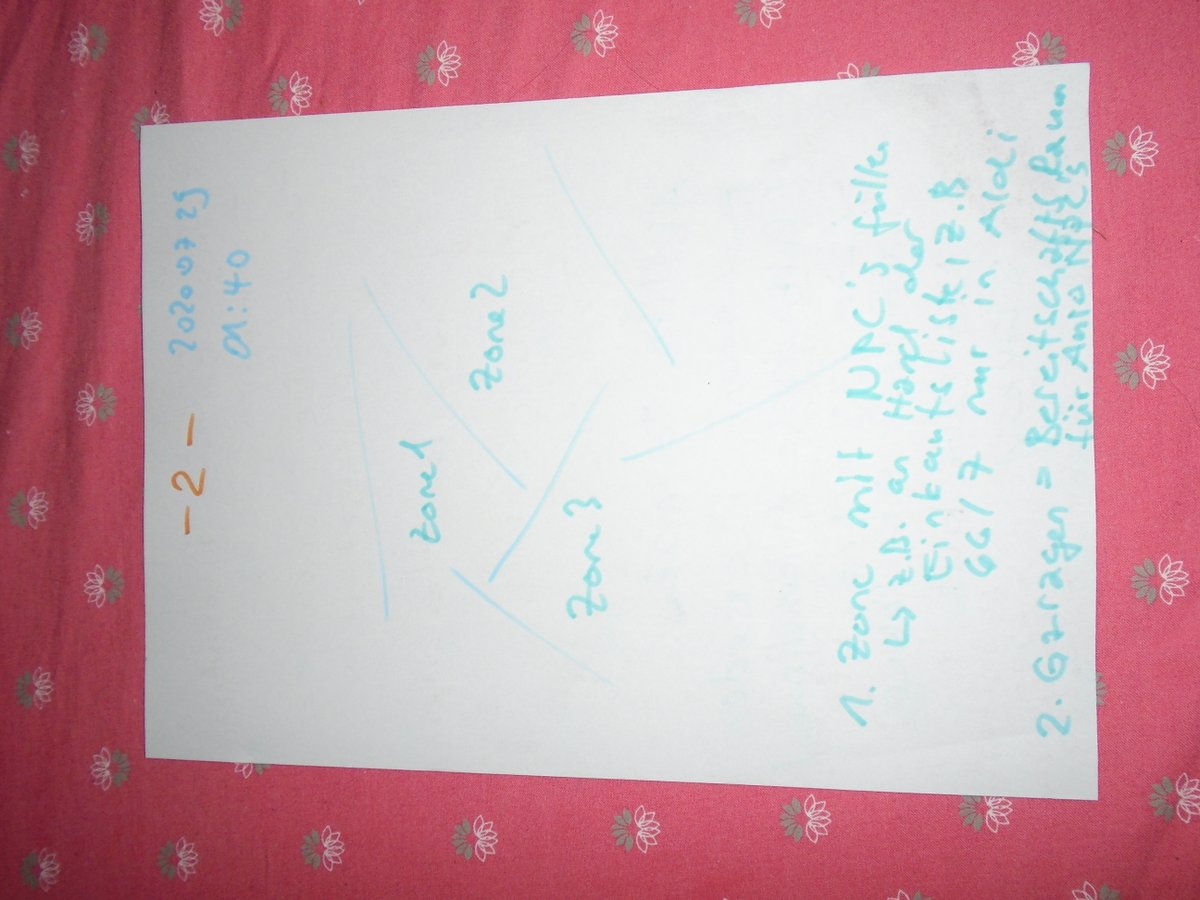 - 2 - 20200729
01:40
Zone 1
Zone 2
Zone 3
1. Zone mit NPC's füllen
↳ z.B. an Hand der
Einkaufsliste, z.B
66/7 nur in Aldi
2. Garagen = Bereitschafts Raum
für NPC's